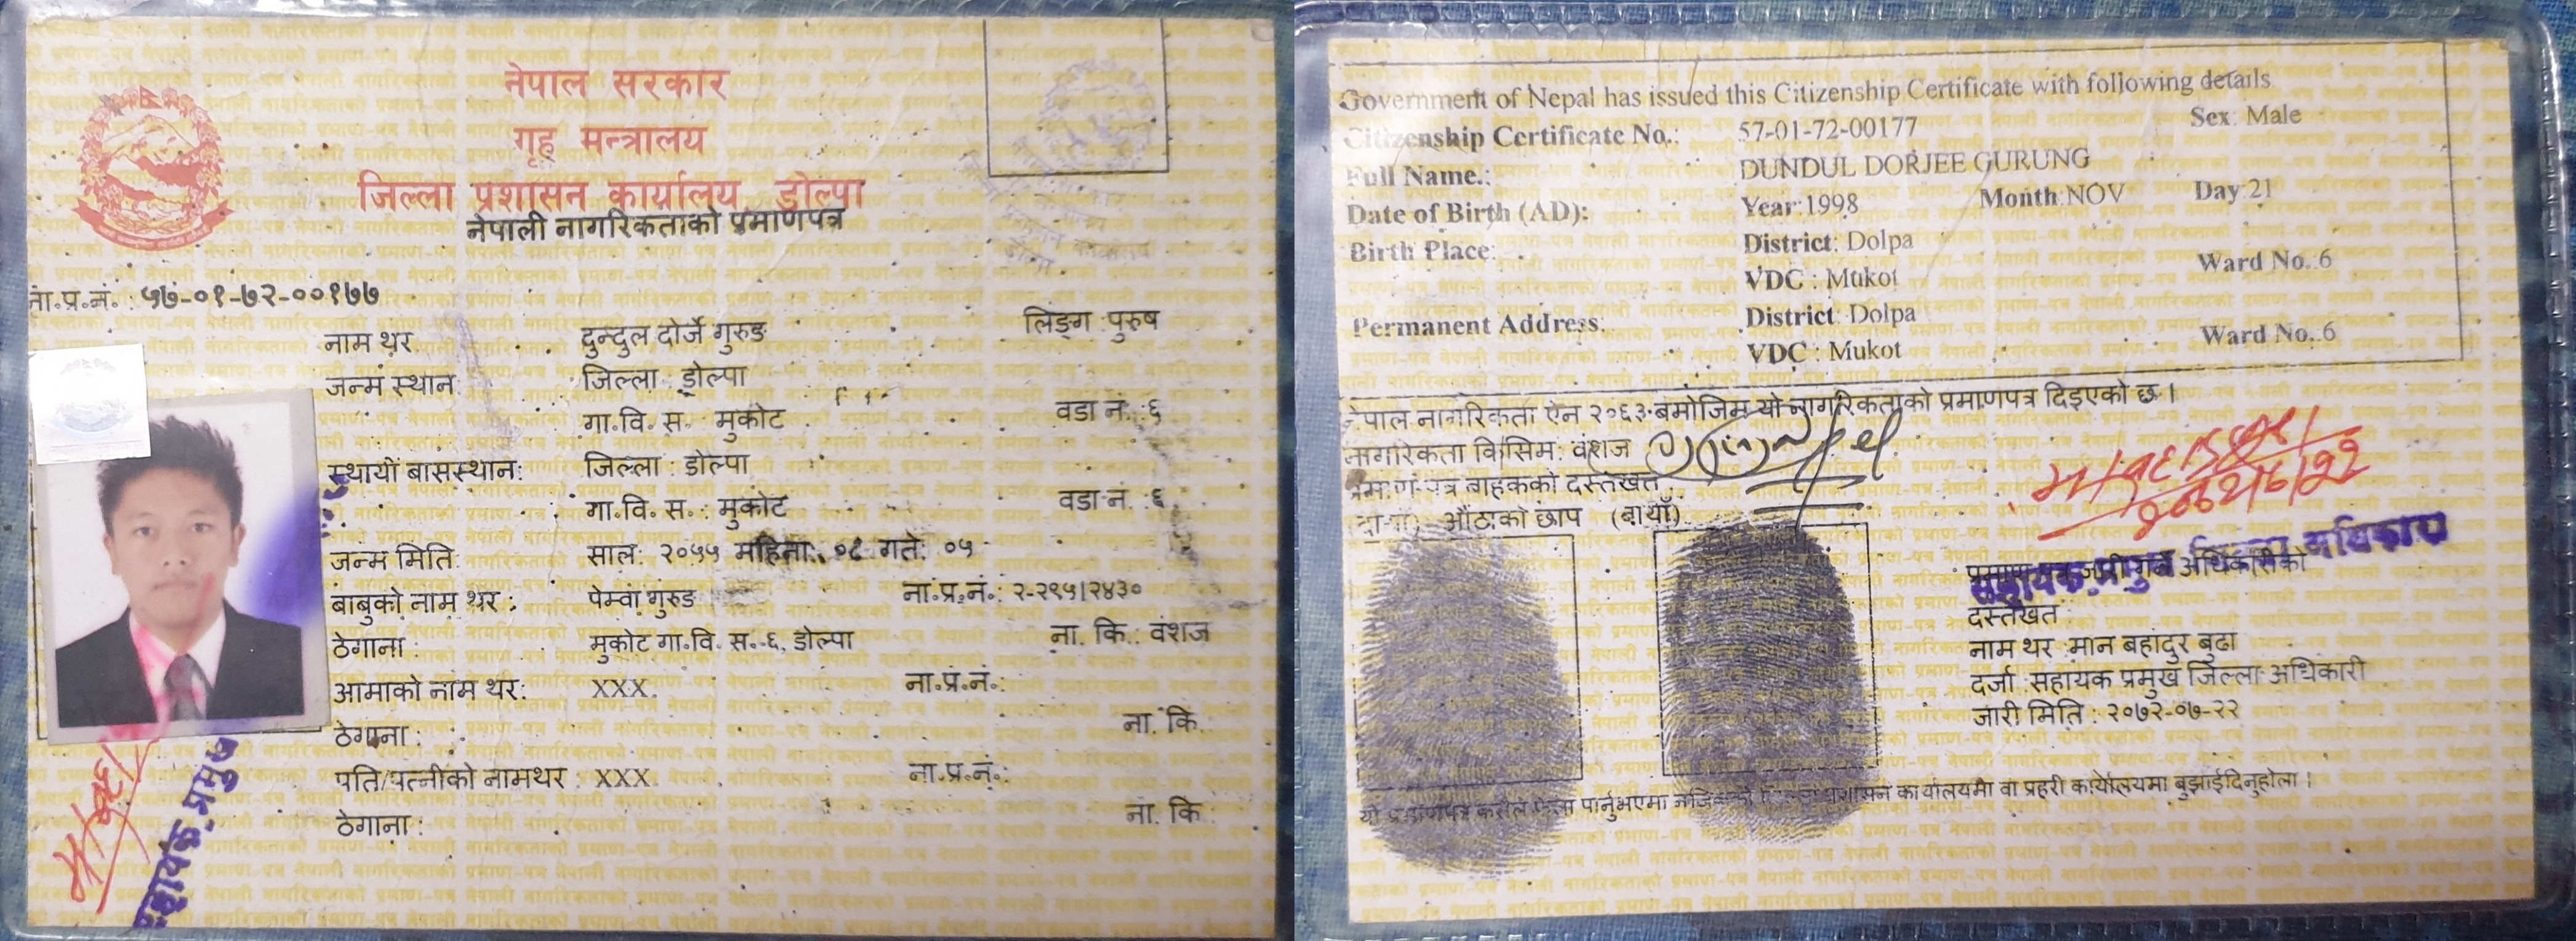 नेपाल सरकार
गृह मन्त्रालय
जिल्ला प्रशासन कार्यालय, डोल्पा
नेपाली नागरिकताको प्रमाणपत्र
ना.प्र.नं. : ५७-०१-७२-००१७७
नाम थर दुन्दुल दोर्जे गुरुङ लिङ्ग : पुरुष
जन्म स्थान: जिल्ला : डोल्पा
गा.वि. स. मुकोट वडा नं. : ६
स्थायी बासस्थान: जिल्ला : डोल्पा
गा.वि. स. : मुकोट वडा नं. : ६
जन्म मिति: साल: २०५५ महिना: ०८ गते: ०५
बाबुको नाम थर : पेम्वा गुरुङ ना.प्र.नं.: २-२९५।२४३०
ठेगाना : मुकोट गा.वि. स.-६, डोल्पा ना. कि.: वंशज
आमाको नाम थर: XXX ना.प्र.नं.:
ठेगाना : ना. कि.
पति/पत्नीको नामथर : XXX ना.प्र.नं.:
ठेगाना : ना. कि.
सहायक प्रमुख
Government of Nepal has issued this Citizenship Certificate with following details
Citizenship Certificate No.: 57-01-72-00177 Sex: Male
Full Name.: DUNDUL DORJEE GURUNG
Date of Birth (AD): Year:1998 Month:NOV Day:21
Birth Place: District: Dolpa
VDC : Mukot Ward No.:6
Permanent Address: District: Dolpa
VDC : Mukot Ward No.:6
नेपाल नागरिकता ऐन २०६३ बमोजिम यो नागरिकताको प्रमाणपत्र दिइएको छ।
नागरिकता किसिम: वंशज
प्रमाण-पत्र वाहकको दस्तखत
औंठाको छाप (बायाँ)
२०७२।७।२२
प्रमाण जारी गर्ने अधिकारीको
दस्तखत
नाम थर : मान बहादुर बुढा
दर्जा : सहायक प्रमुख जिल्ला अधिकारी
जारी मिति : २०७२-०७-२२
यो प्रमाणपत्र कसैले फेला पार्नुभएमा नजिकको जिल्ला प्रशासन कार्यालयमा वा प्रहरी कार्यालयमा बुझाईदिनुहोला।